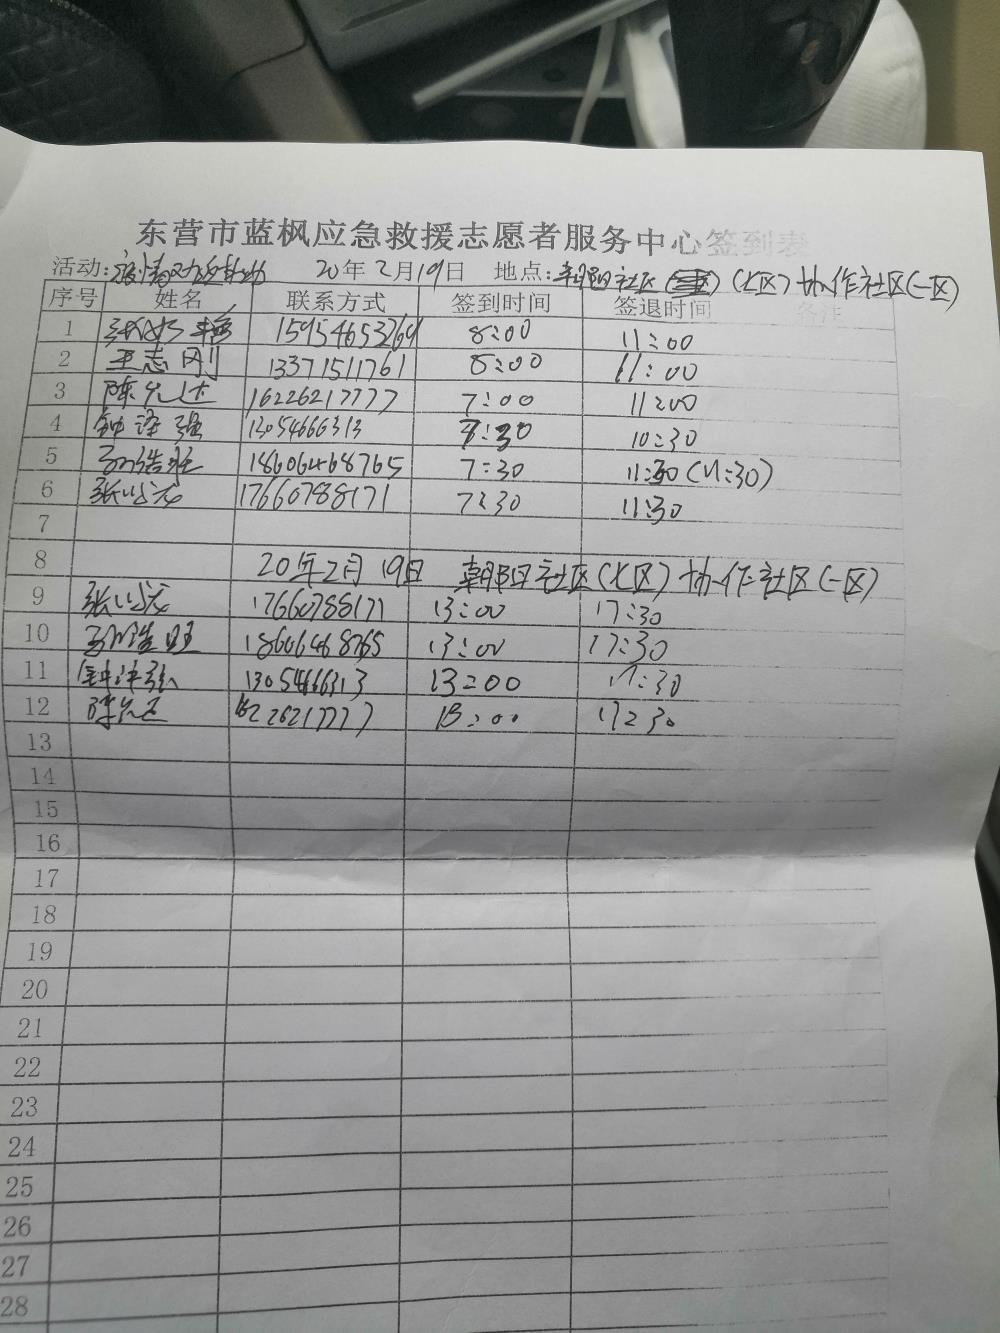 东营市蓝枫应急救援志愿者服务中心签到表
活动:疫情 20年2月19日 地点:朝阳社区(北区)协作社区(一区)
序号 姓名 联系方式 签到时间 签退时间 备注
1 15954653269 8:00 11:00
2 王志刚 13371511761 8:00 11:00
3 陈允达 16226217777 7:00 11:00
4 钟泽强 13054666313 7:30 10:30
5 18606468765 7:30 11:30(11:30)
6 张 17660788171 7:30 11:30
7
8 20年2月19日 朝阳社区(北区)协作社区(一区)
9 张 17660788171 13:00 17:30
10 18606468765 13:00 17:30
11 13054666313 13:00 17:30
12 陈允达 16226217777 13:00 17:30
13
14
15
16
17
18
19
20
21
22
23
24
25
26
27
28